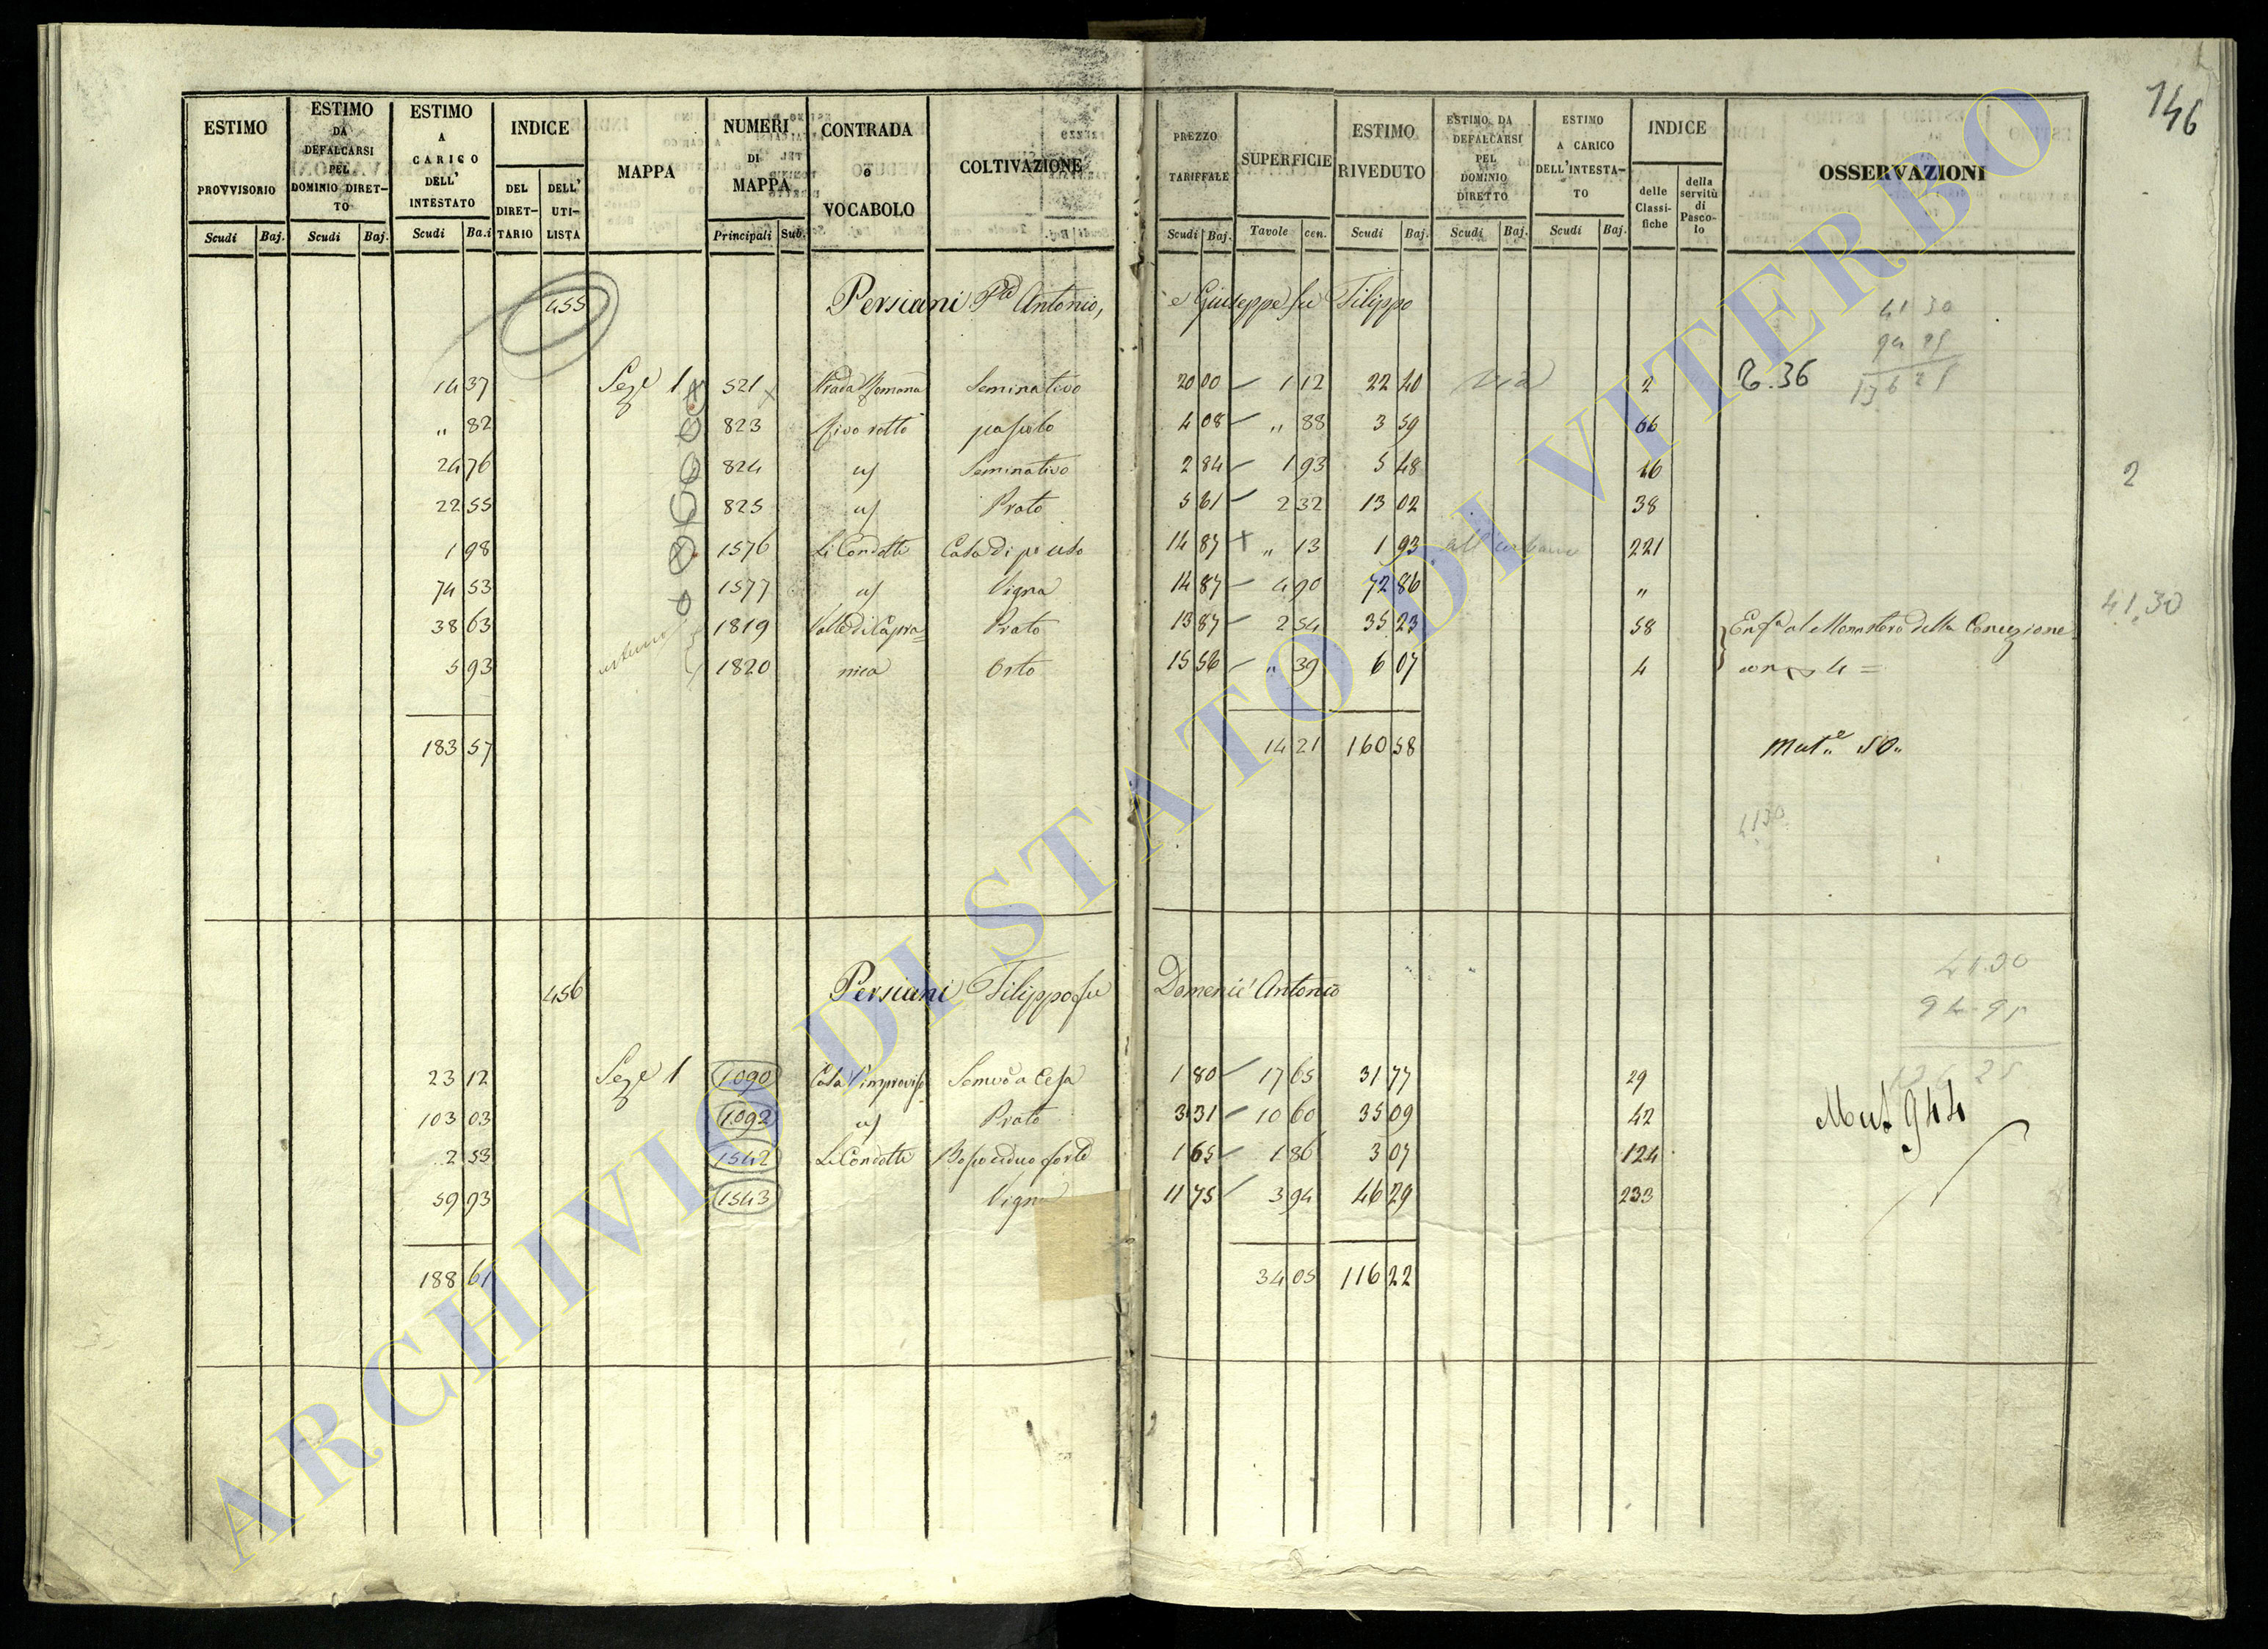 146
ESTIMO PROVVISORIO Scudi Baj.
ESTIMO DA DEFALCARSI PEL DOMINIO DIRET-TO Scudi Baj.
ESTIMO A CARICO DELL' INTESTATO Scudi Ba.i
INDICE DEL DIRET-TARIO DELL' UTI-LISTA
MAPPA
NUMERI DI MAPPA Principali Sub.
CONTRADA o VOCABOLO
COLTIVAZIONE
PREZZO TARIFFALE Scudi Baj.
SUPERFICIE Tavole cen.
ESTIMO RIVEDUTO Scudi Baj.
ESTIMO DA DEFALCARSI PEL DOMINIO DIRETTO Scudi Baj.
ESTIMO A CARICO DELL'INTESTA-TO Scudi Baj.
INDICE delle Classi-fiche della servitù di Pasco-lo
OSSERVAZIONI
455 Persiani Antonio, e Giuseppe fu Filippo
41 30
94 95
136 25
14 37 Seze 1 521 Strada Romana Seminativo 20 00 1 12 22 40 2 36
" 82 823 Rivo rotto pascolo 4 08 " 88 3 59 66
24 76 824 Seminativo 2 84 1 93 5 48 16
2
22 55 825 Prato 5 61 2 32 13 02 38
1 98 1576 Li Condotti Casa di po uso 14 87 " 13 1 93 all urbano 221
74 53 1577 Vigna 14 87 4 90 72 86 "
41.30
38 63 1819 Valle di Capra= Prato 13 87 2 54 35 23 58 Enfa al Monastero della Concezione
5 93 1820 nica Orto 15 56 " 39 6 07 4 4 =
183 57 14 21 160 58 Mut.e 50"
4130
456 Persiani Filippo fu Domenic' Antonio
41.30
94.95
136 25
23 12 Seze 1 1090 Casa l'improvis Semvo a Cesa 1 80 17 65 31 77 29
103 03 1092 Prato 3 31 10 60 35 09 42 Mut 944
2 53 1542 Li Condotti Bosco ceduo forte 1 65 1 86 3 07 124
59 93 1543 Vigna 11 75 3 94 46 29 233
188 61 34 05 116 22
ARCHIVIO DI STATO DI VITERBO